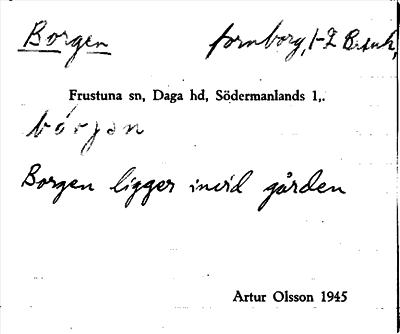 Borgen fornborg,
Frustuna sn, Daga hd, Södermanlands l,.
bórjan
Borgen ligger invid gården
Artur Olsson 1945